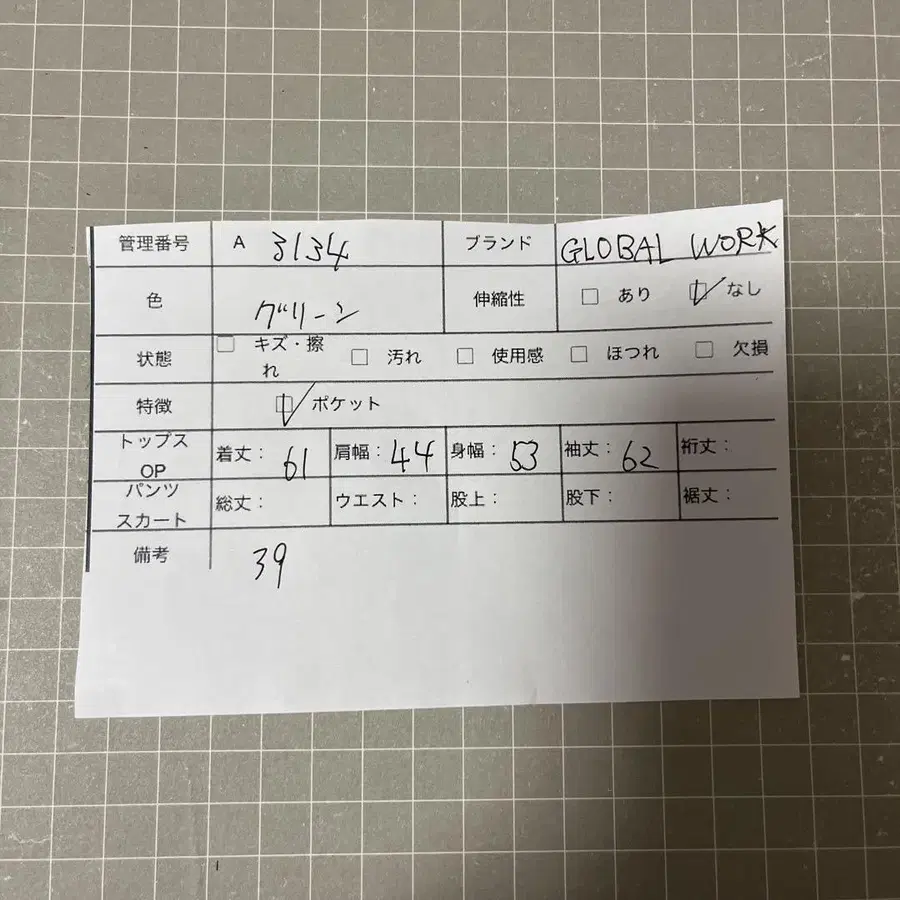 管理番号 A 3134 ブランド GLOBAL WORK
色 グリーン 伸縮性 □ あり ☑ なし
状態 □ キズ・擦れ □ 汚れ □ 使用感 □ ほつれ □ 欠損
特徴 ☑ ポケット
トップス OP 着丈： 61 肩幅： 44 身幅： 53 袖丈： 62 裄丈：
パンツ スカート 総丈： ウエスト： 股上： 股下： 裾丈：
備考 39